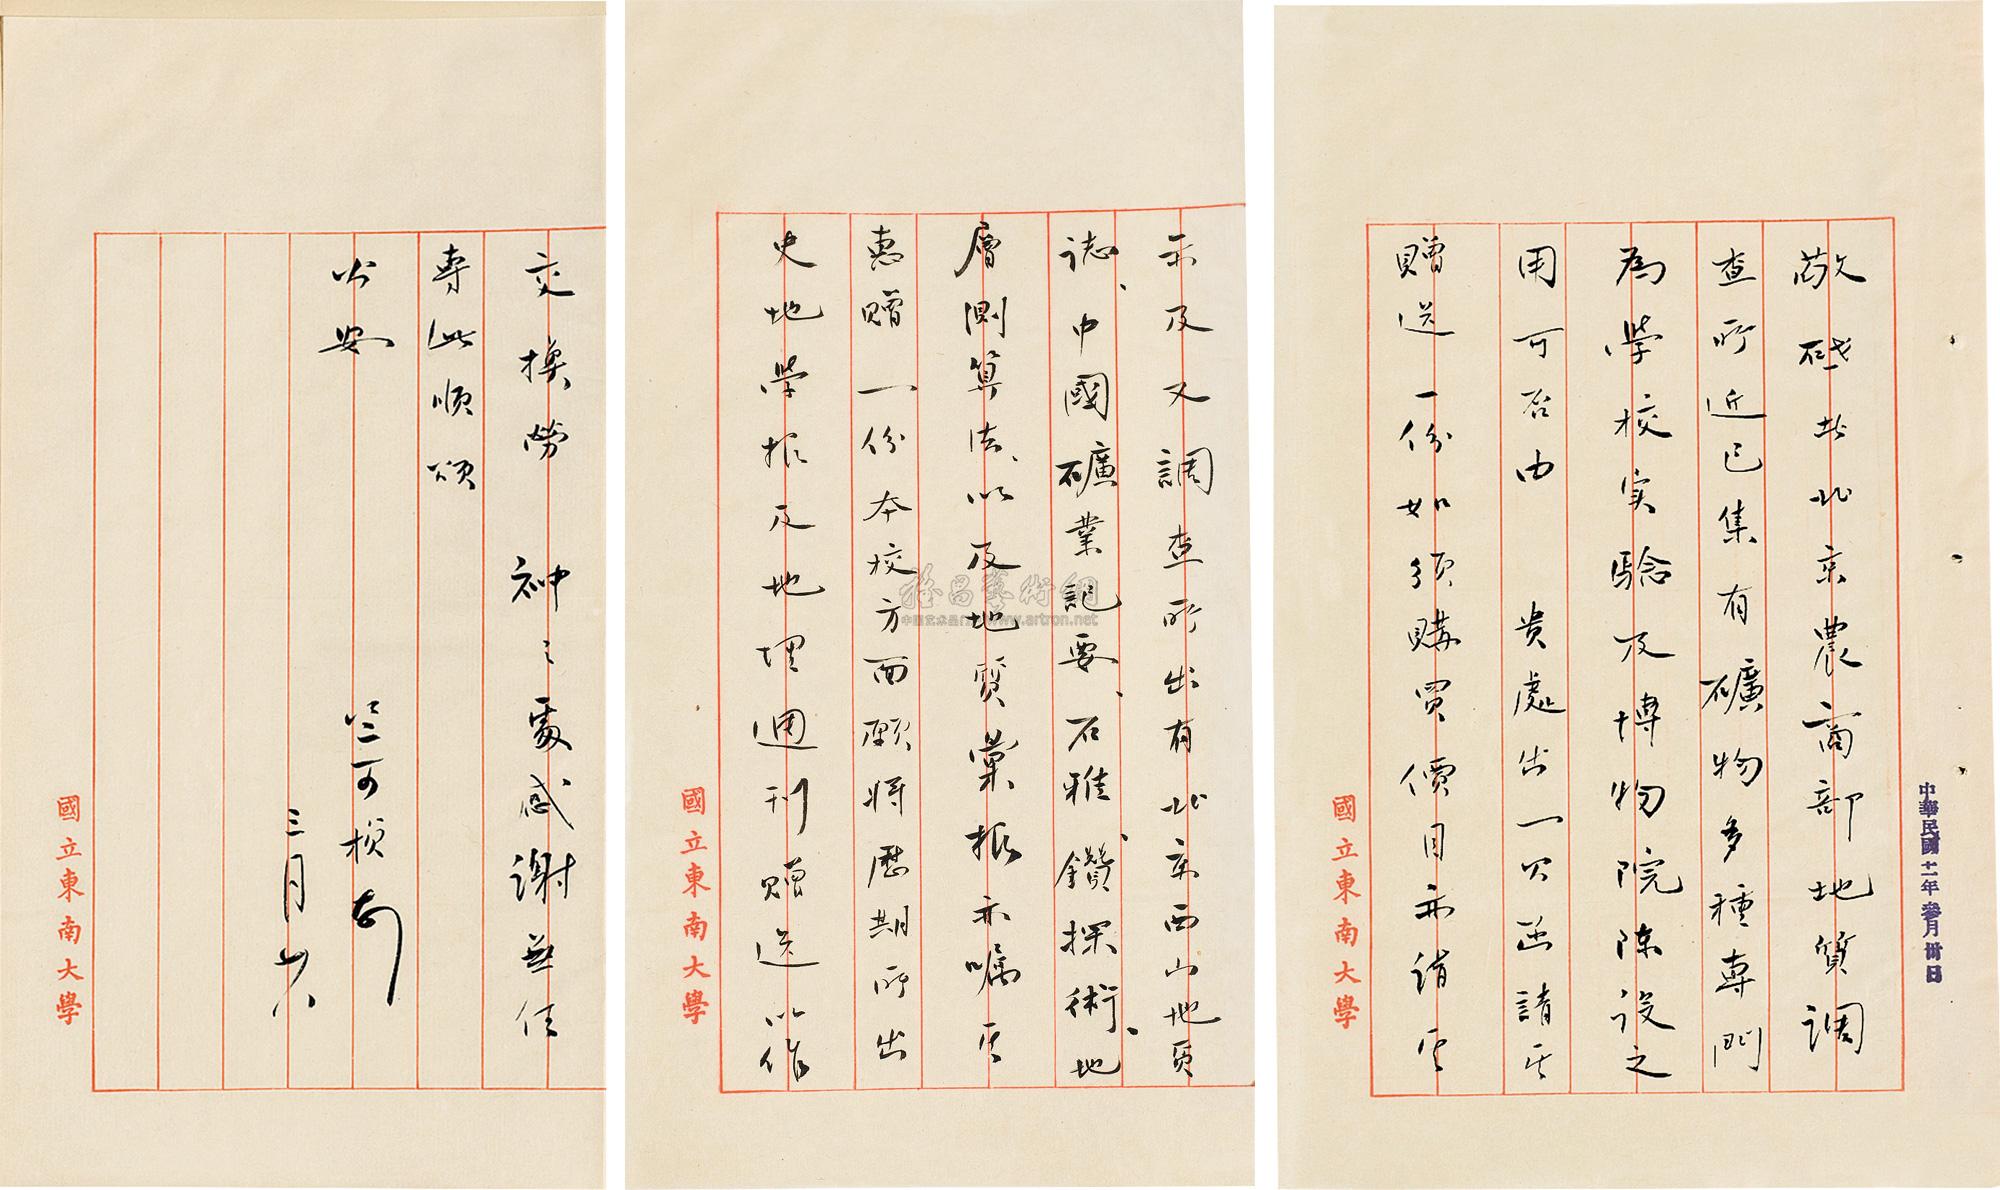 中華民國十一年叁月卅日
敬啟者北京農商部地質調
查所近已集有礦物多種專門
為學校实驗及博物院陈设之
用可否由　貴處出一公函請其
贈送一份如须購買價目亦請其
國立東南大學
示及又調查所出有北京西山地質
誌、中國礦業記要、石雅、鑽探術、地
層測算法、以及地質彙报亦嘱其
惠贈一份本校方面願将歷期所出
史地学报及地理週刊贈送以作
國立東南大學
交換勞　神之處感謝無任
專此順頌
公安
竺可楨啟
三月廿八
國立東南大學
雅昌藝術網
中国艺术品门户 www.artron.net